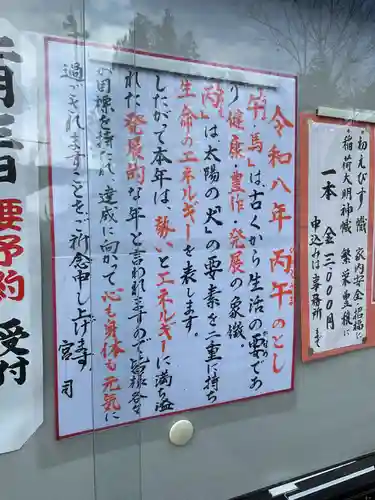 ・初えびす幟 家内安全・招福に
・稲荷大明神幟 繁栄豊穣に
一本 金三,〇〇〇円
申込みは事務所まで
令和八年 丙午のとし
「午・馬」は、古くから生活の要であり
健康・豊作・発展の象徴、
「丙」は太陽の「火」の要素を二重に持ち
生命のエネルギーを表します。
したがって本年は、勢いとエネルギーに満ち溢
れた発展的な年と言われますので、皆様各々
が目標を持たれ、達成に向かって心も身体も元気に
過ごされますことをご祈念申し上げます。 宮司
要予約 受付